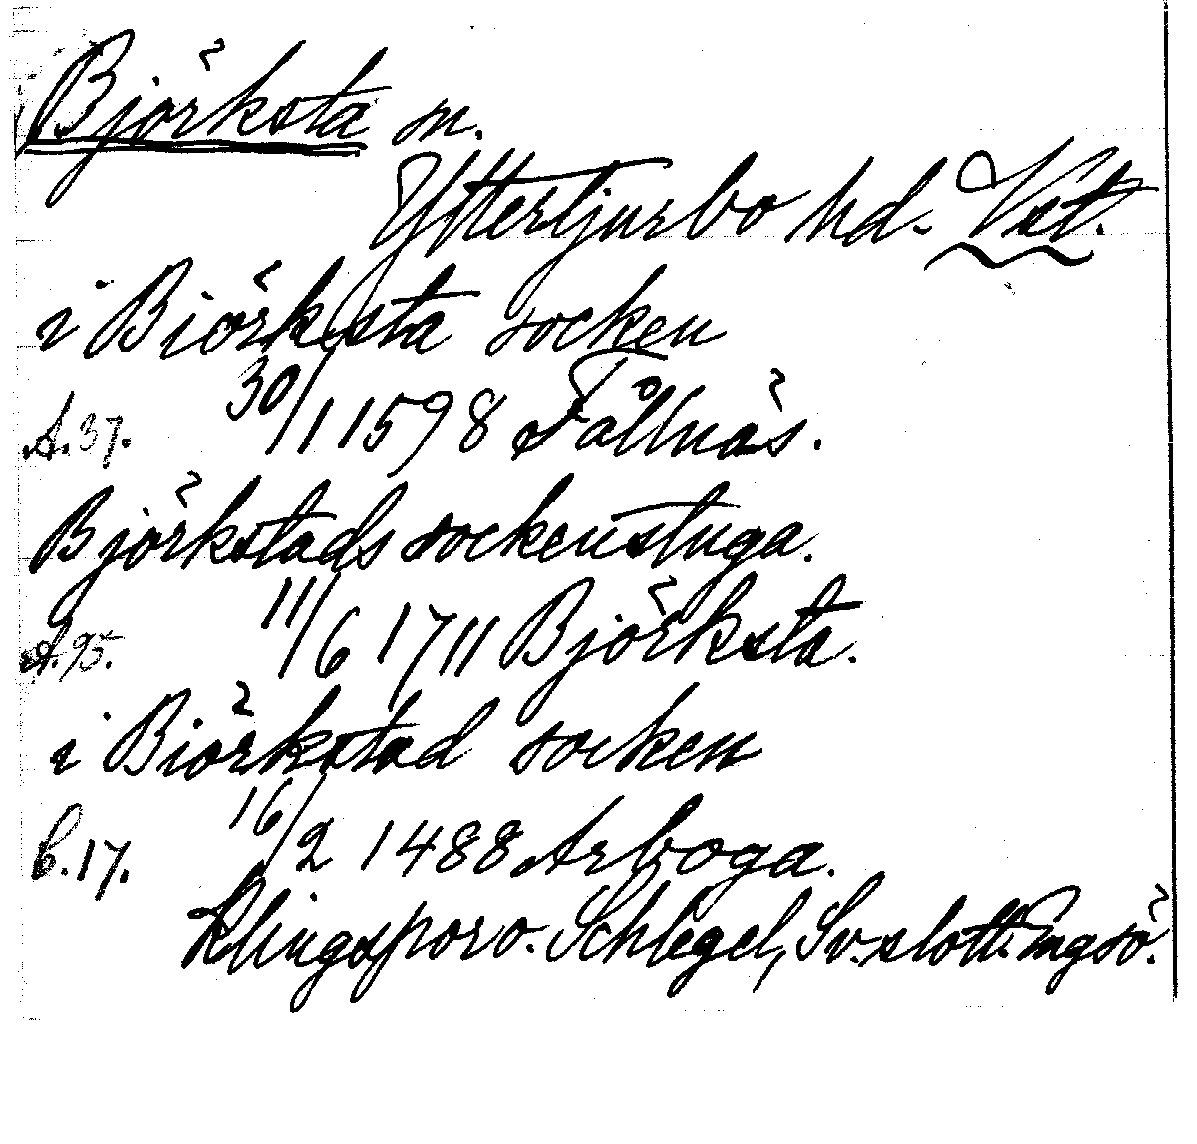 Björksta sn.
Yttertjurbo hd. Vst.
i Biörkesta socken
A.37. 30/11 1598 Fållnäs.
Björkstads sockenstuga.
A.95. 11/6 1711 Björksta.
i Biörkstad socken
b.17. 16/2 1488 Arboga.
Klingspor o. Schlegel, Sv. slott. Engsö.